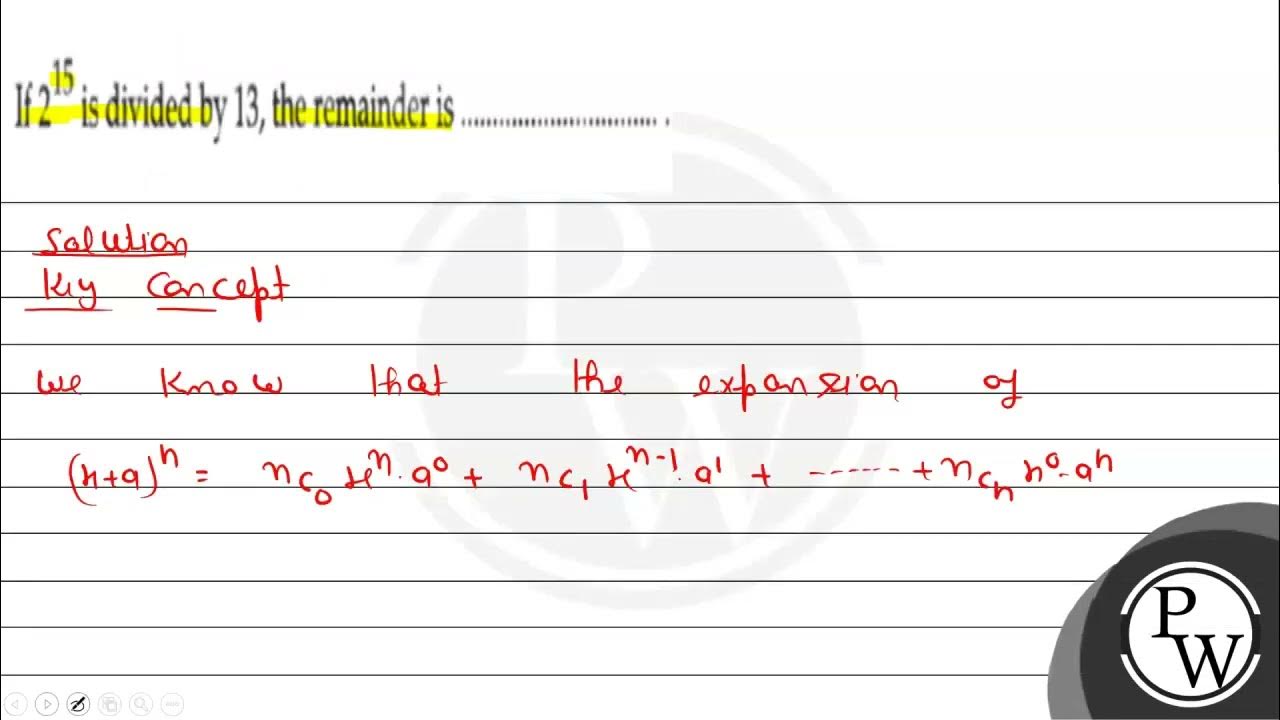 If 2^15 is divided by 13, the remainder is ................................ .
Solution
Key Concept
we know that the expansion of
(x+a)^n = nC0 x^n · a^0 + nC1 x^n-1 · a^1 + ------ + nCn x^0 · a^n
PW
PW